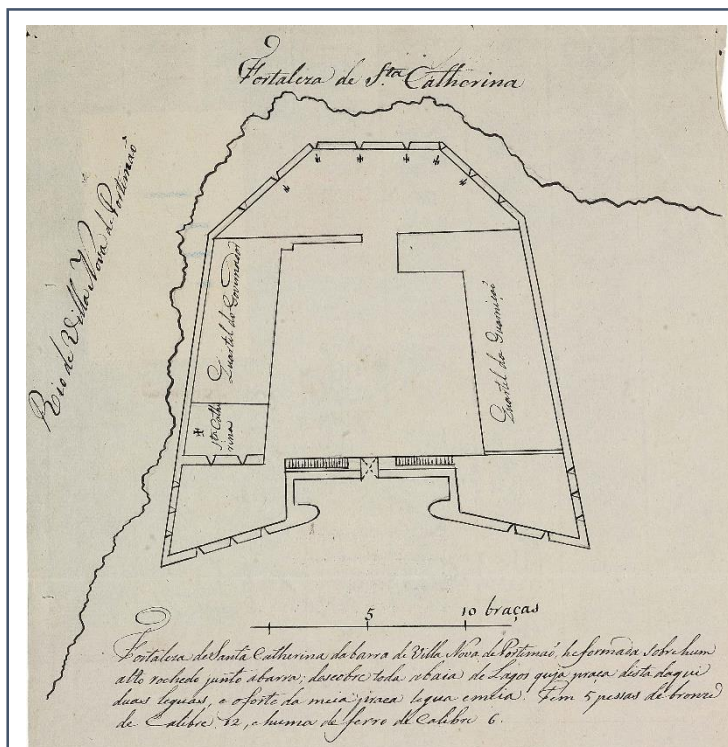 Fortaleza de Sta. Catherina
Rio de Villa Nova de Portimaõ
Quartel do Governador
Quartel da Guarniçaõ
Sta Cathe
rina
5 10 braças
Fortaleza de Santa Catherina da barra de Villa Nova de Portimaõ, he formada sobre hum
alto rochedo junto abarra; descobre toda abaia de Lagos cuja praca dista daqui
duas leguas, e oforte da meia praca legua emeia. Tem 5 pessas de bronze
de Calibre 12, e huma de ferro de Calibre 6.